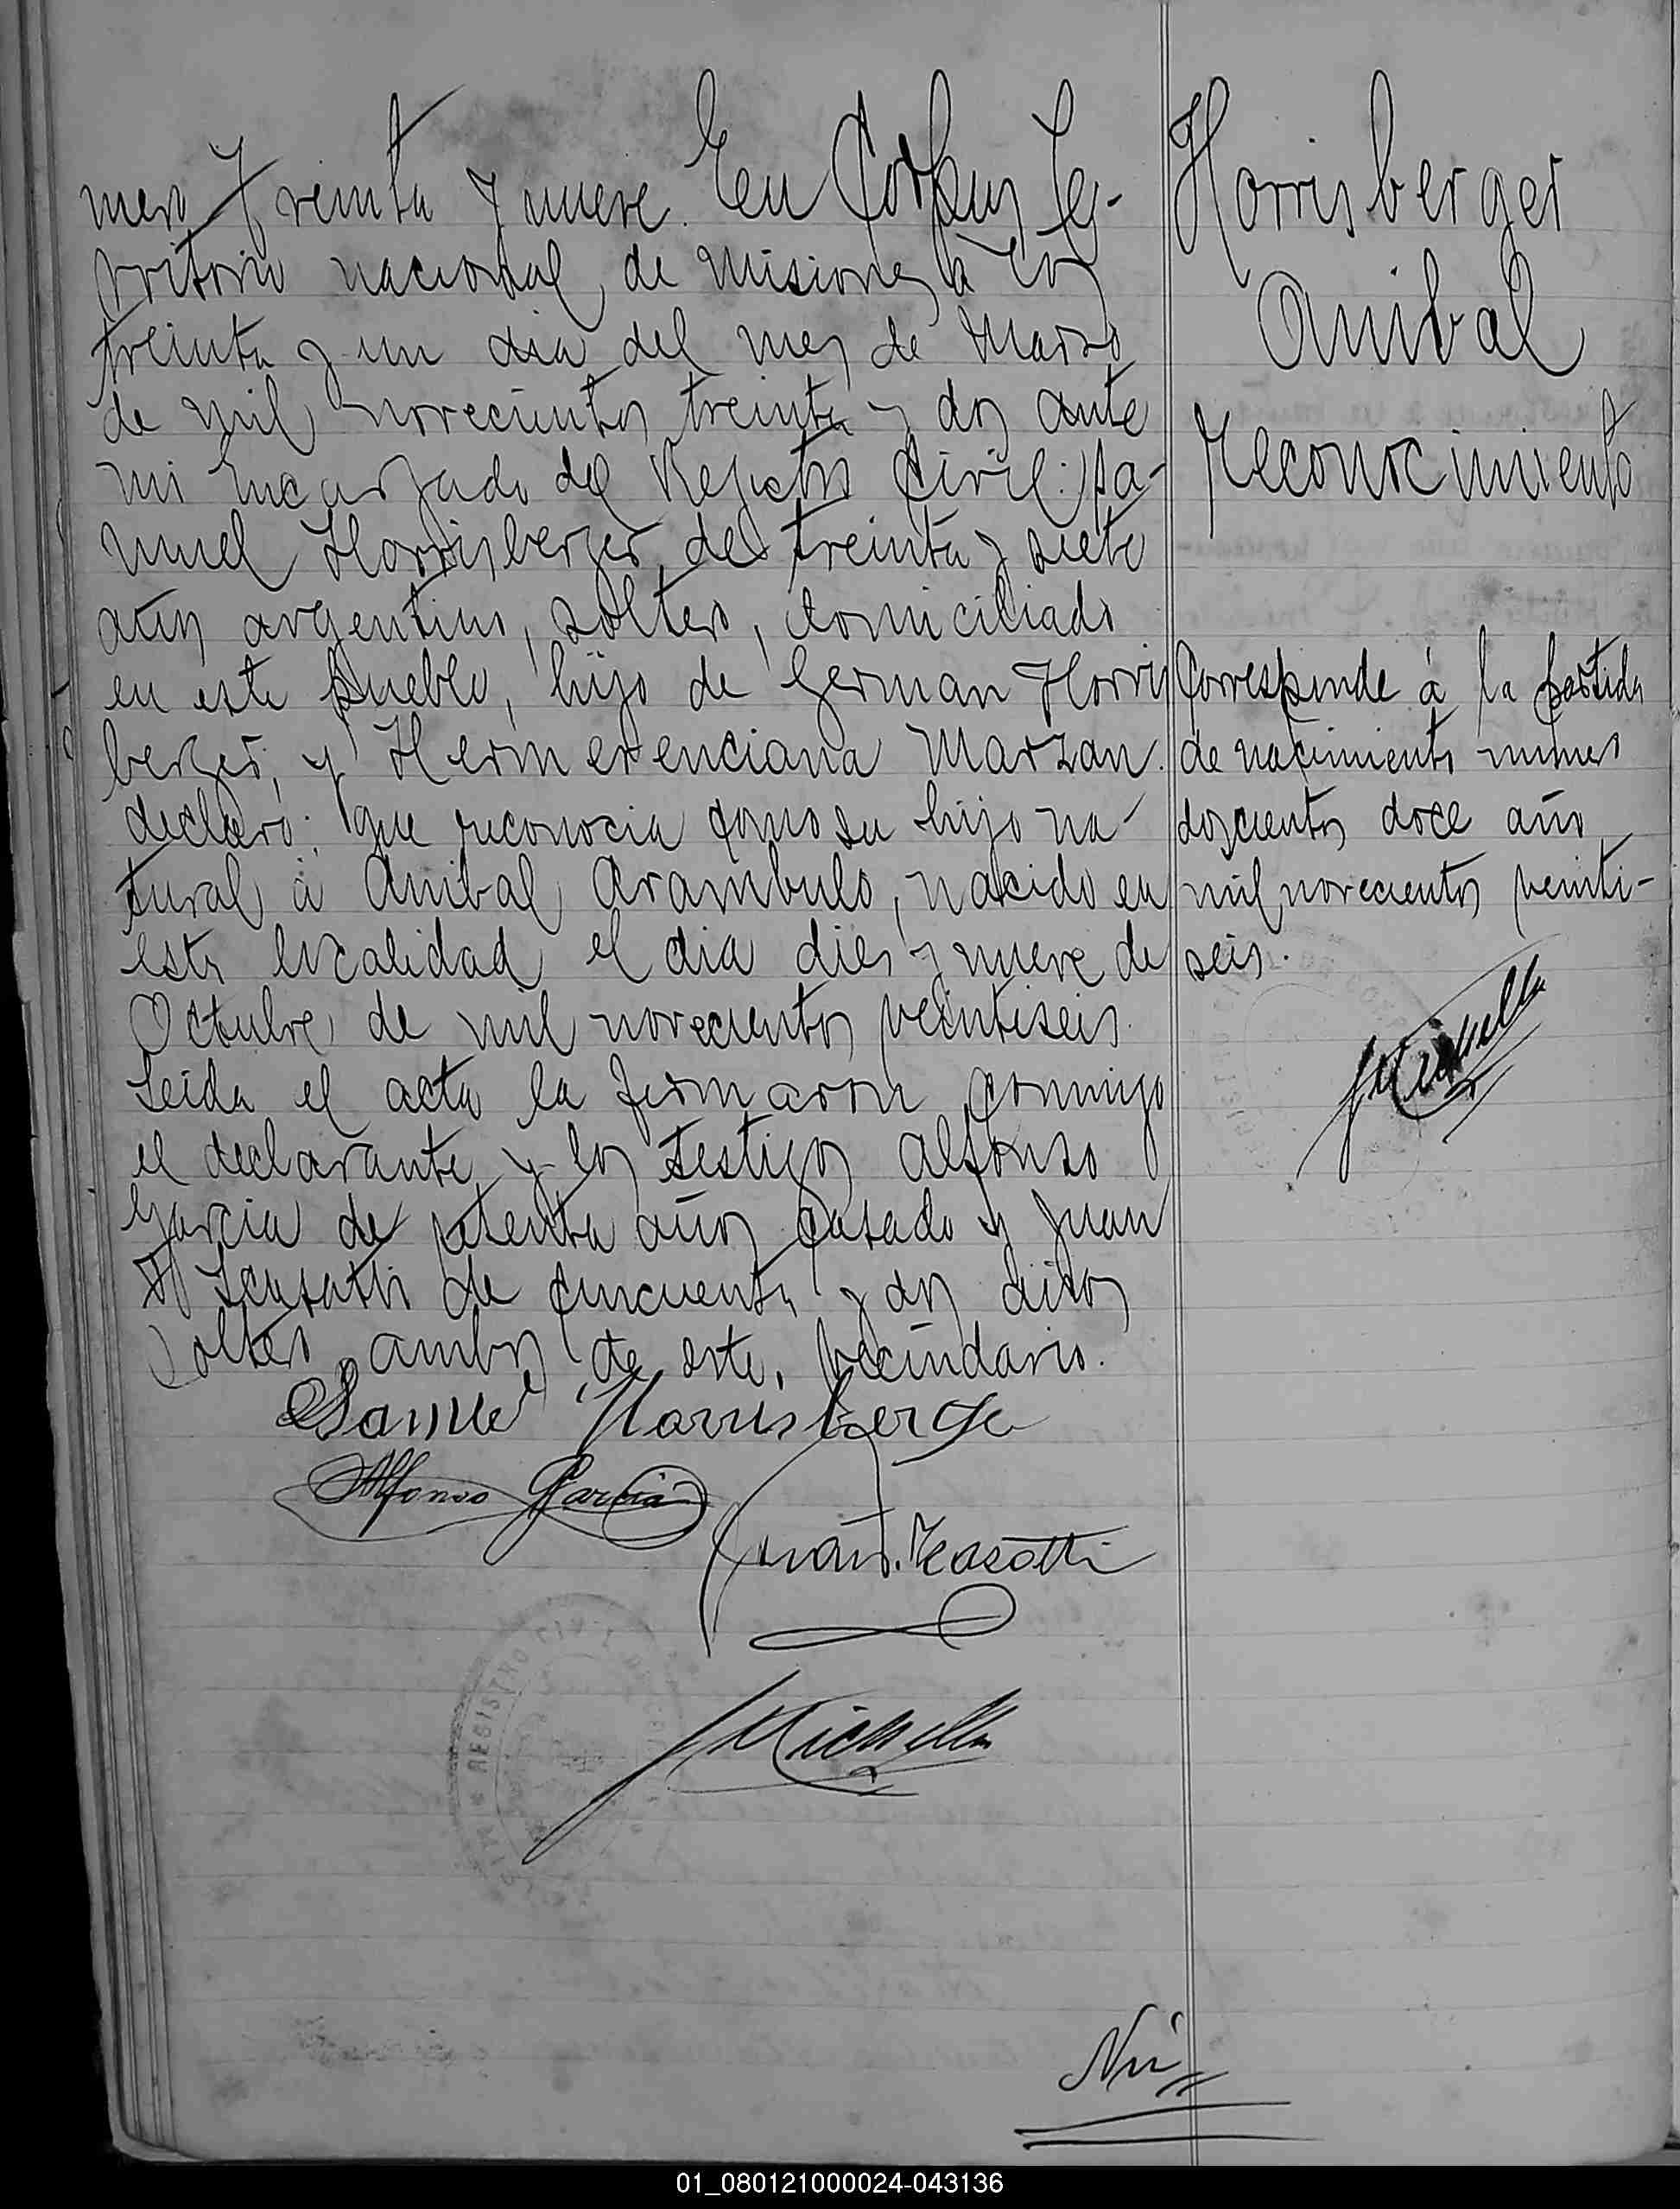 mero Treinta y nueve. En Corpus Te-
rritorio nacional, de Misiones á los
treinta y un dia del mes de Marzo
de mil novecientos treinta y dos ante
mi Encargado del Registro Civil: Sa-
muel Horrisberger de treinta y siete
años argentino, soltero, domiciliado
en este pueblo, hijo de German Horris
berger, y Hermerenciana Marzan.
declaró: que reconocia como su hijo na-
tural á Anibal Arambulo, nacido en
esta localidad el dia dies y nueve de
Octubre de mil novecientos veintiseis.
Leida el acta la firmaron conmigo
el declarante y los testigos Alfonso
Garcia de setenta años casado y Juan
de cincuenta y dos años
soltero ambos de este, vecindario.
Samuel Horrisberger
Alfonso Garcia
Juan
Horrisberger
Anibal
Reconocimiento
Corresponde á la partida
de nacimiento numero
doscientos doce año
mil novecientos veinti-
seis.
REGISTRO CIVIL
01_080121000024-043136